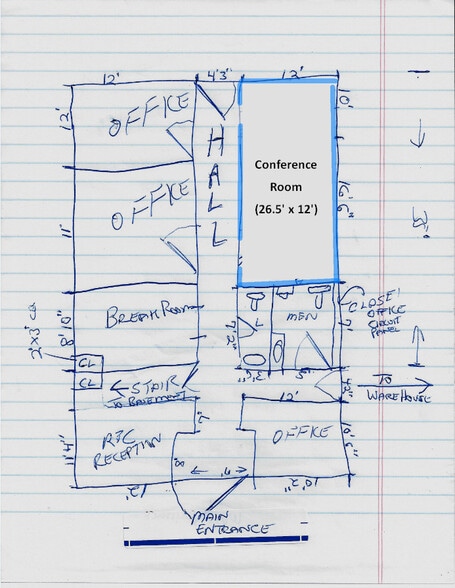 12'
4'3"
12'
12'
OFFICE
HALL
10'
Conference
Room
(26.5' x 12')
16'6"
11'
OFFICE
BREAK ROOM
8'10"
2'x3' EA.
CL
CL
MEN
7'2"
7'
CLOSE'
OFFICE
CIRCUIT
PANEL
3'6"
5'
STAIR
TO BASEMENT
TO
WAREHOUSE
12'
REC
RECEPTION
11'4"
OFFICE
10'3"
2'
8'
9'
12'
10'2"
MAIN
ENTRANCE